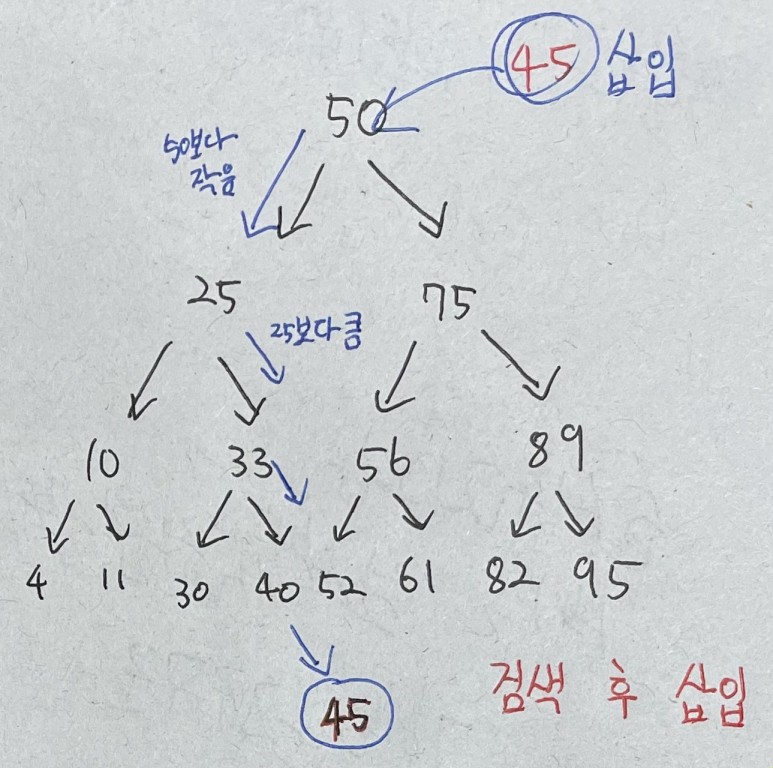 45 삽입
50
50보다
작음
25 75
25보다 큼
10 33 56 89
4 11 30 40 52 61 82 95
45
검색 후 삽입